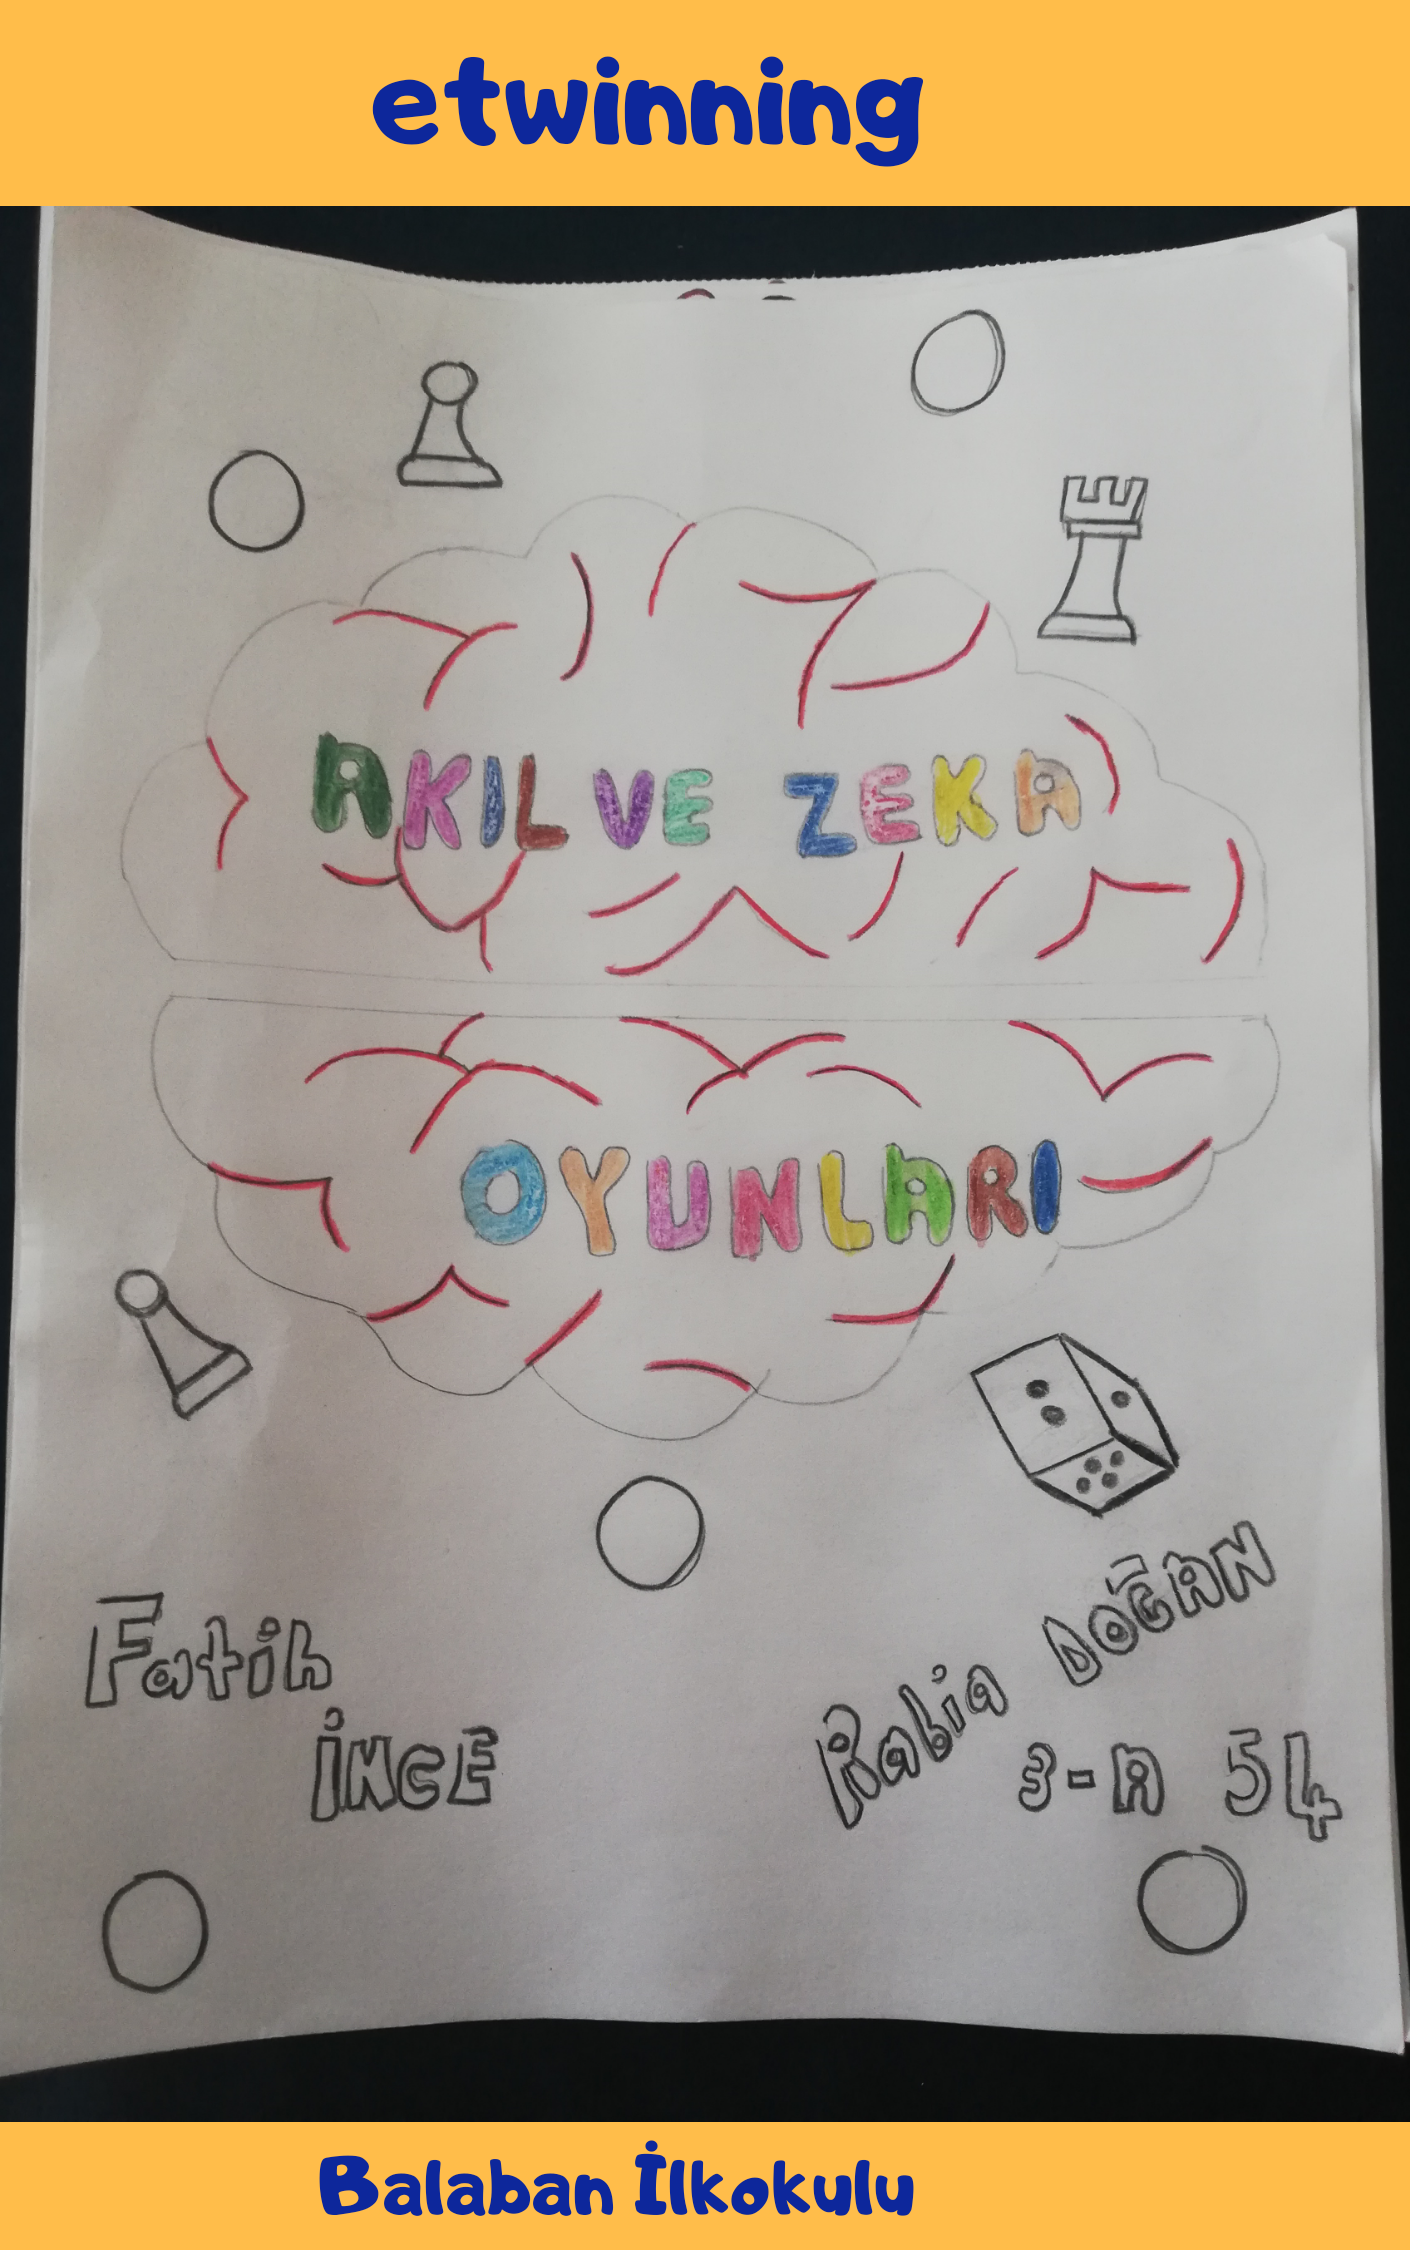 etwinning
AKIL VE ZEKA
OYUNLARI
Fatih
İNCE
Rabia DOĞAN
3-A 54
Balaban İlkokulu